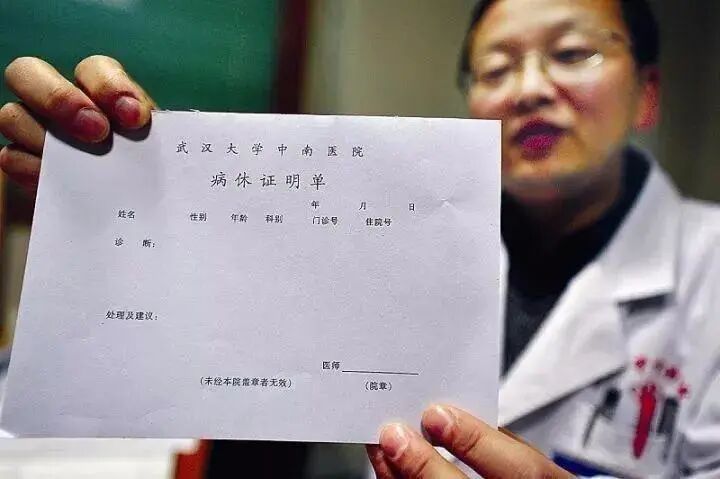 武汉大学中南医院
病休证明单
年 月 日
姓名 性别 年龄 科别 门诊号 住院号
诊 断：
处理及建议：
医师
（未经本院盖章者无效） （院章）